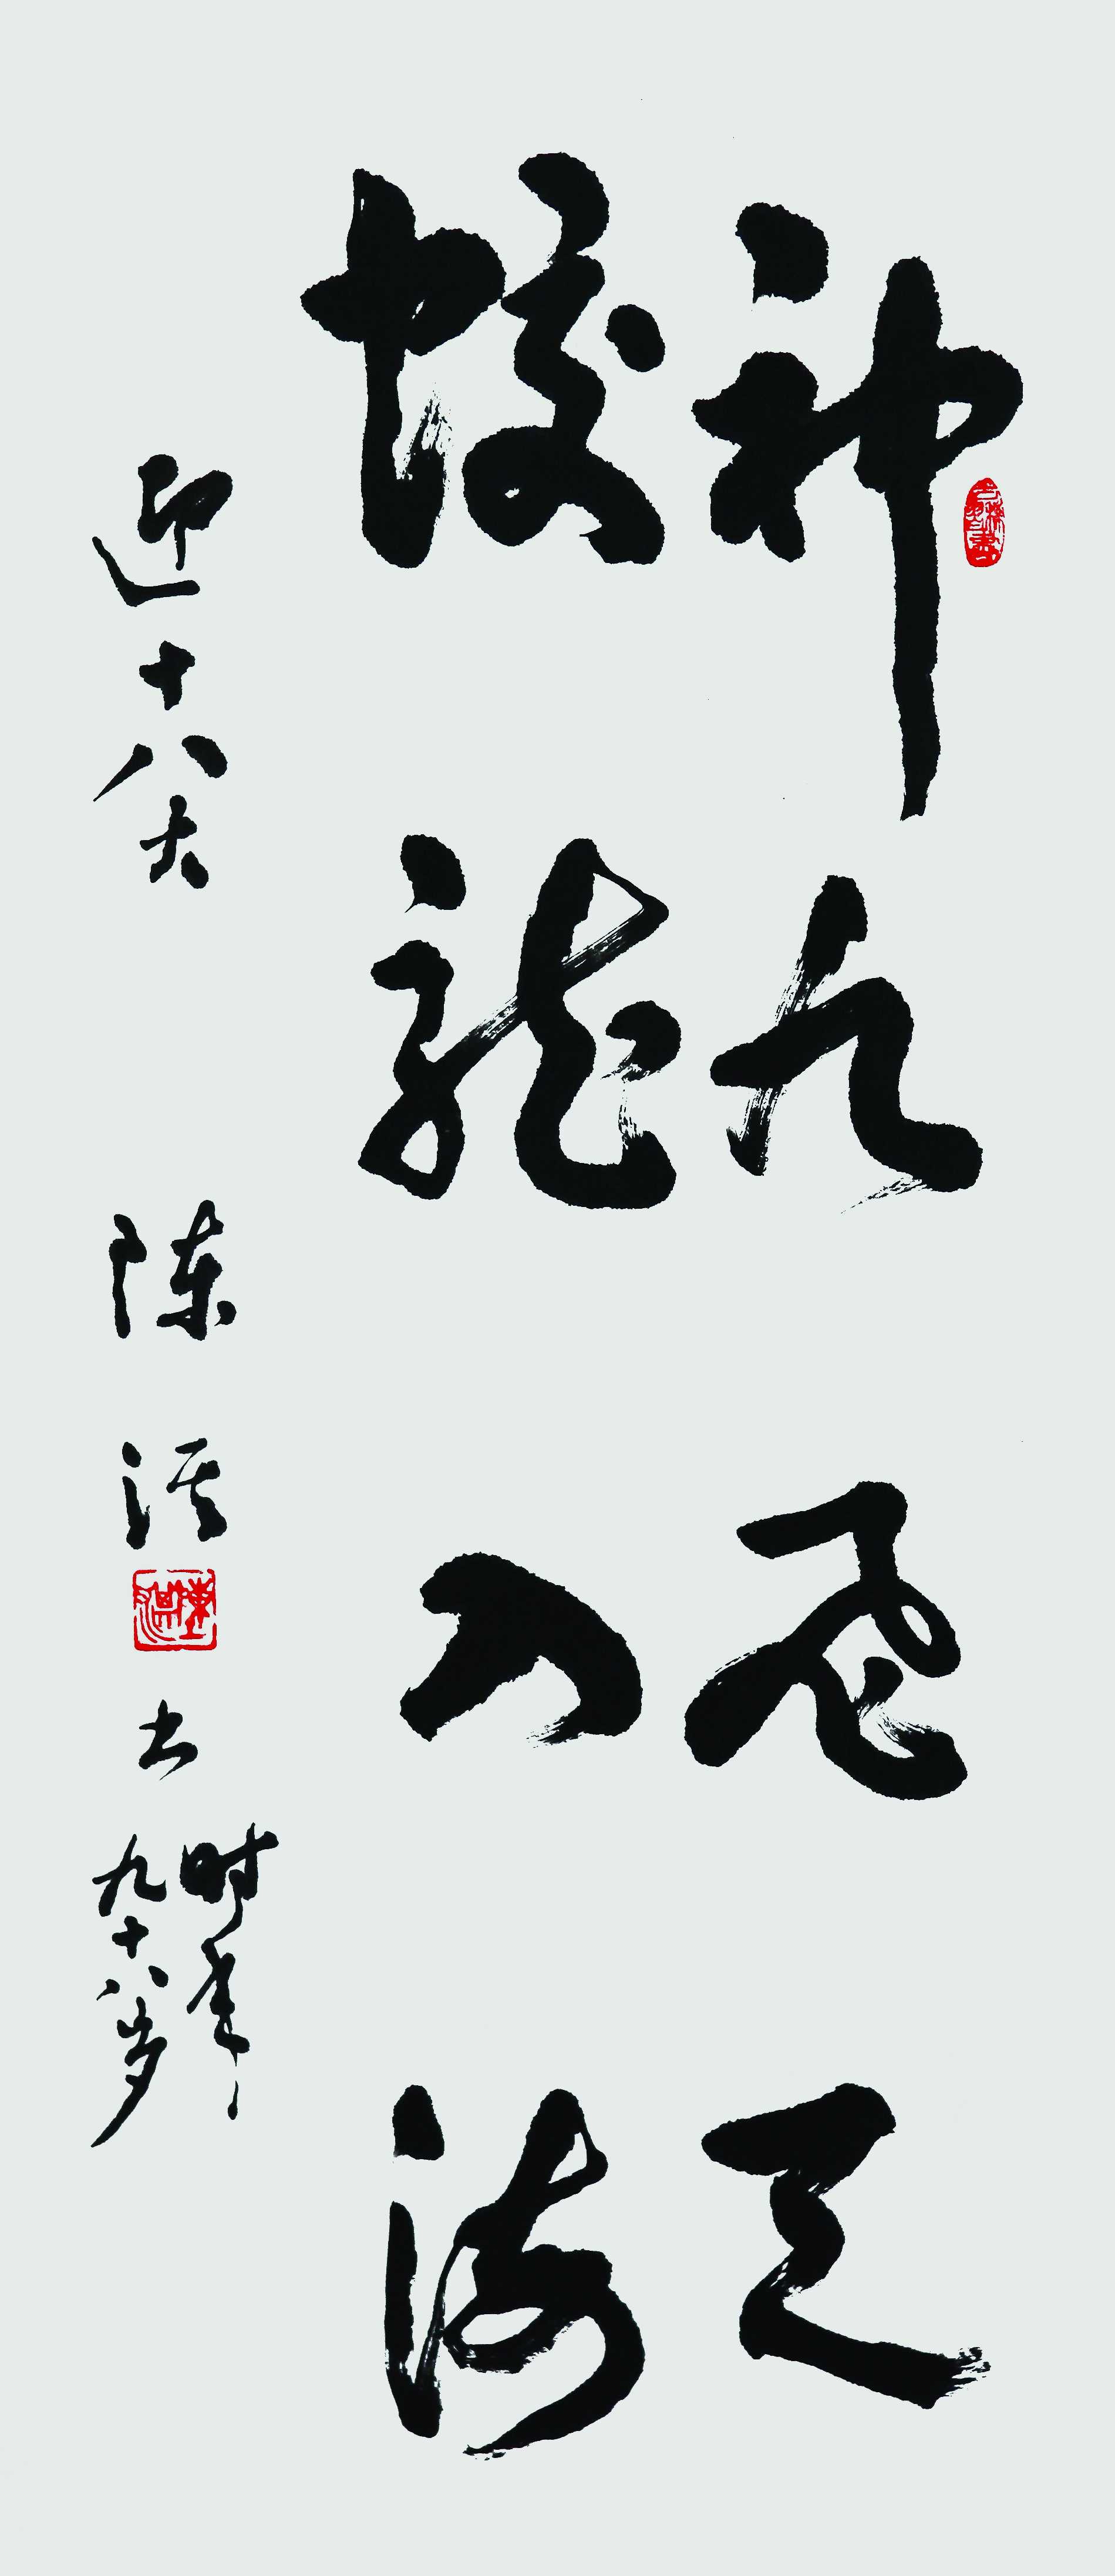 神九飛天
蛟龍入海
迎十八大 陈 书
时年
九十八岁